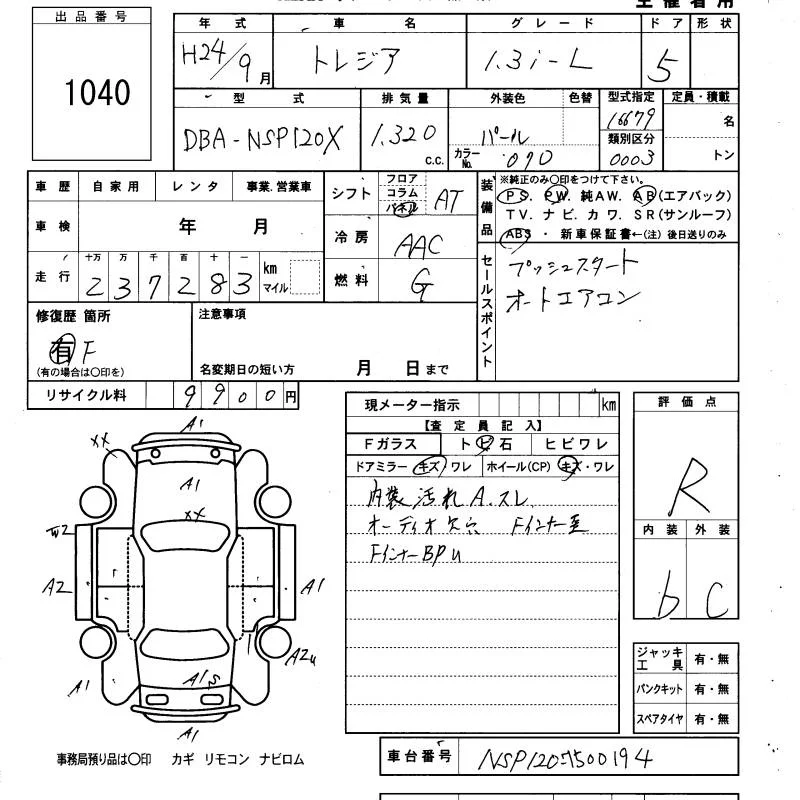 出品番号
1040
年式 車名 グレード ドア 形状
H24/9月 トレジア 1.3i-L 5
型式 排気量 外装色 色替 型式指定 定員・積載
DBA-NSP120X 1.320 c.c. パール 16679 名
カラーNo. 070 類別区分 0003 トン
車歴 自家用 レンタ 事業.営業車
車検 年 月
走行 十万 万 千 百 十 一 km マイル
2 3 7 2 8 3
シフト フロア コラム パネル AT
冷房 AAC
燃料 G
装備品 ※純正のみ〇印をつけて下さい。
PS. PW. 純AW. AB(エアバック)
TV. ナビ. カワ. SR(サンルーフ)
ABS ・ 新車保証書←(注) 後日送りのみ
セールスポイント
プッシュスタート
オートエアコン
修復歴 箇所
有 F
(有の場合は〇印を)
注意事項
名変期日の短い方 月 日まで
リサイクル料 9900円
現メーター指示 km
【査定員記入】
Fガラス トビ石 ヒビワレ
ドアミラー キズ/ワレ ホイール(CP) キズ・ワレ
内装汚れ A.スレ
オーディオ欠穴 Fインナー歪
FインナーBPU
評価点
R
内装 外装
b C
A1
XX
A1
XX
W2
A2
A1
A1
A1S
A2U
A1
ジャッキ工具 有・無
パンクキット 有・無
スペアタイヤ 有・無
事務局預り品は〇印 カギ リモコン ナビロム
車台番号 NSP120-7500194